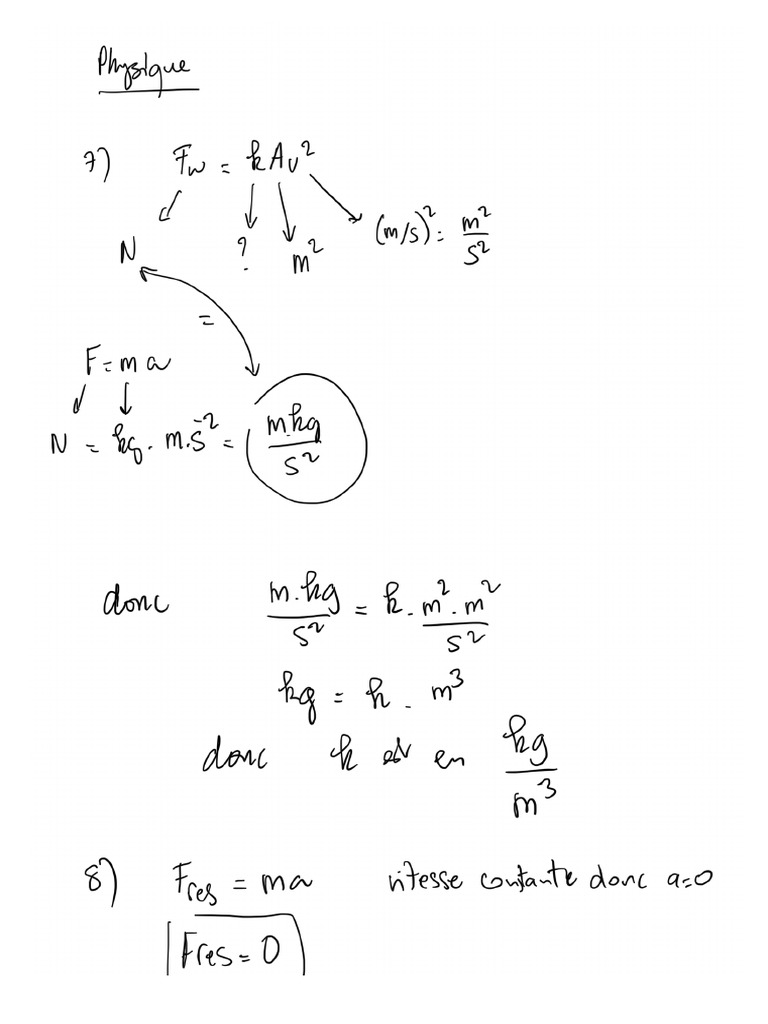 Physique
7) Fw = kAv²
N ? m² (m/s)² = m²/s²
=
F = ma
N = kg . m.s⁻² = m.kg/s²
donc m.kg/s² = k . m².m²/s²
kg = k . m³
donc k est en kg/m³
8) Fres = ma vitesse constante donc a=0
Fres = 0